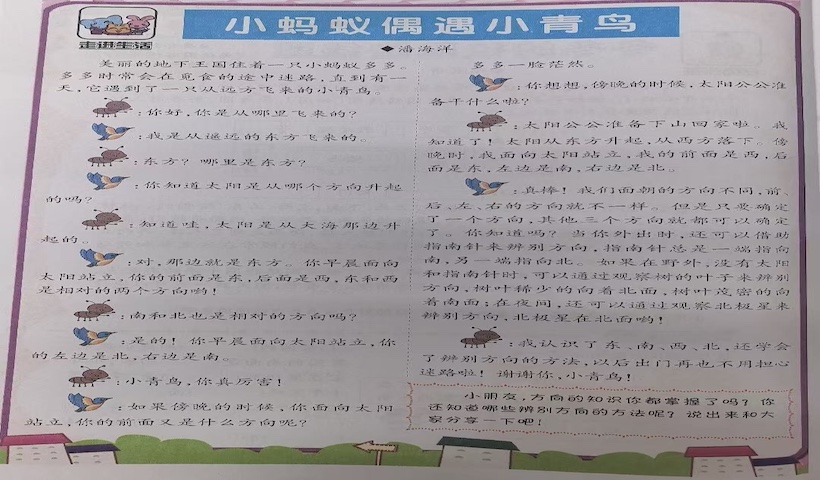 走进生活
小蚂蚁偶遇小青鸟
◆潘海洋
美丽的地下王国住着一只小蚂蚁多多。
多多时常会在觅食的途中迷路,直到有一
天,它遇到了一只从远方飞来的小青鸟。
:你好,你是从哪里飞来的?
:我是从遥远的东方飞来的。
:东方?哪里是东方?
:你知道太阳是从哪个方向升起
的吗?
:知道哇,太阳是从大海那边升
起的。
:对,那边就是东方。你早晨面向
太阳站立,你的前面是东,后面是西,东和西
是相对的两个方向哟!
:南和北也是相对的方向吗?
:是的!你早晨面向太阳站立,你
的左边是北,右边是南。
:小青鸟,你真厉害!
:如果傍晚的时候,你面向太阳
站立,你的前面又是什么方向呢?
多多一脸茫然。
:你想想,傍晚的时候,太阳公公准
备干什么啦?
:太阳公公准备下山回家啦。我
知道了!太阳从东方升起,从西方落下。傍
晚时,我面向太阳站立,我的前面是西,后
面是东,左边是南,右边是北。
:真棒!我们面朝的方向不同,前、
后、左、右的方向就不一样。但是只要确定
了一个方向,其他三个方向就都可以确定
了。你知道吗?当你外出时,还可以借助
指南针来辨别方向,指南针总是一端指向
南,另一端指向北。如果在野外,没有太阳
和指南针时,可以通过观察树的叶子来辨别
方向,树叶稀少的向着北面,树叶茂密的向
着南面;在夜间,还可以通过观察北极星来
辨别方向,北极星在北面哟!
:我认识了东、南、西、北,还学会
了辨别方向的方法,以后出门再也不用担心
迷路啦!谢谢你,小青鸟!
小朋友,方向的知识你都掌握了吗?你
还知道哪些辨别方向的方法呢?说出来和大
家分享一下吧!